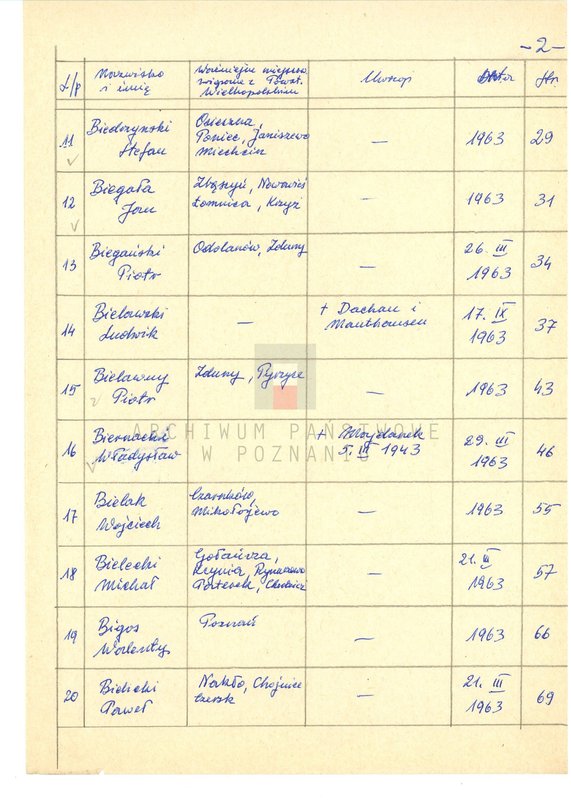 -2-
L/p Nazwisko i imię Ważniejsze miejsca związane z Powst. Wielkopolskim Str.
11 Biedrzyński Stefan Osieczna, Poniec, Janiszewo Miechcin — 1963 29
12 Biegała Jan Zbąszyń, Nowawieś Łomnica, Krzyż — 1963 31
13 Biegański Piotr Odolanów, Zduny — 26. III 1963 34
14 Bielawski Ludwik — + Dachau i Mauthausen 17. IX 1963 37
15 Bielawny Piotr Zduny, Pyzyce — 1963 43
16 Biernacki Władysław + Majdanek 5. III 1943 29. III 1963 46
17 Bielak Wojciech Czarnków, Mikołajewo — 1963 55
18 Bielecki Michał Gołańcza, Kcynia, Rynarzewo Chodzież — 21. III 1963 57
19 Bigos Walenty Poznań — 1963 66
20 Paweł Nakło, Chojnice Czersk — 21. III 1963 69
ARCHIWUM PAŃSTWOWE
W POZNANIU